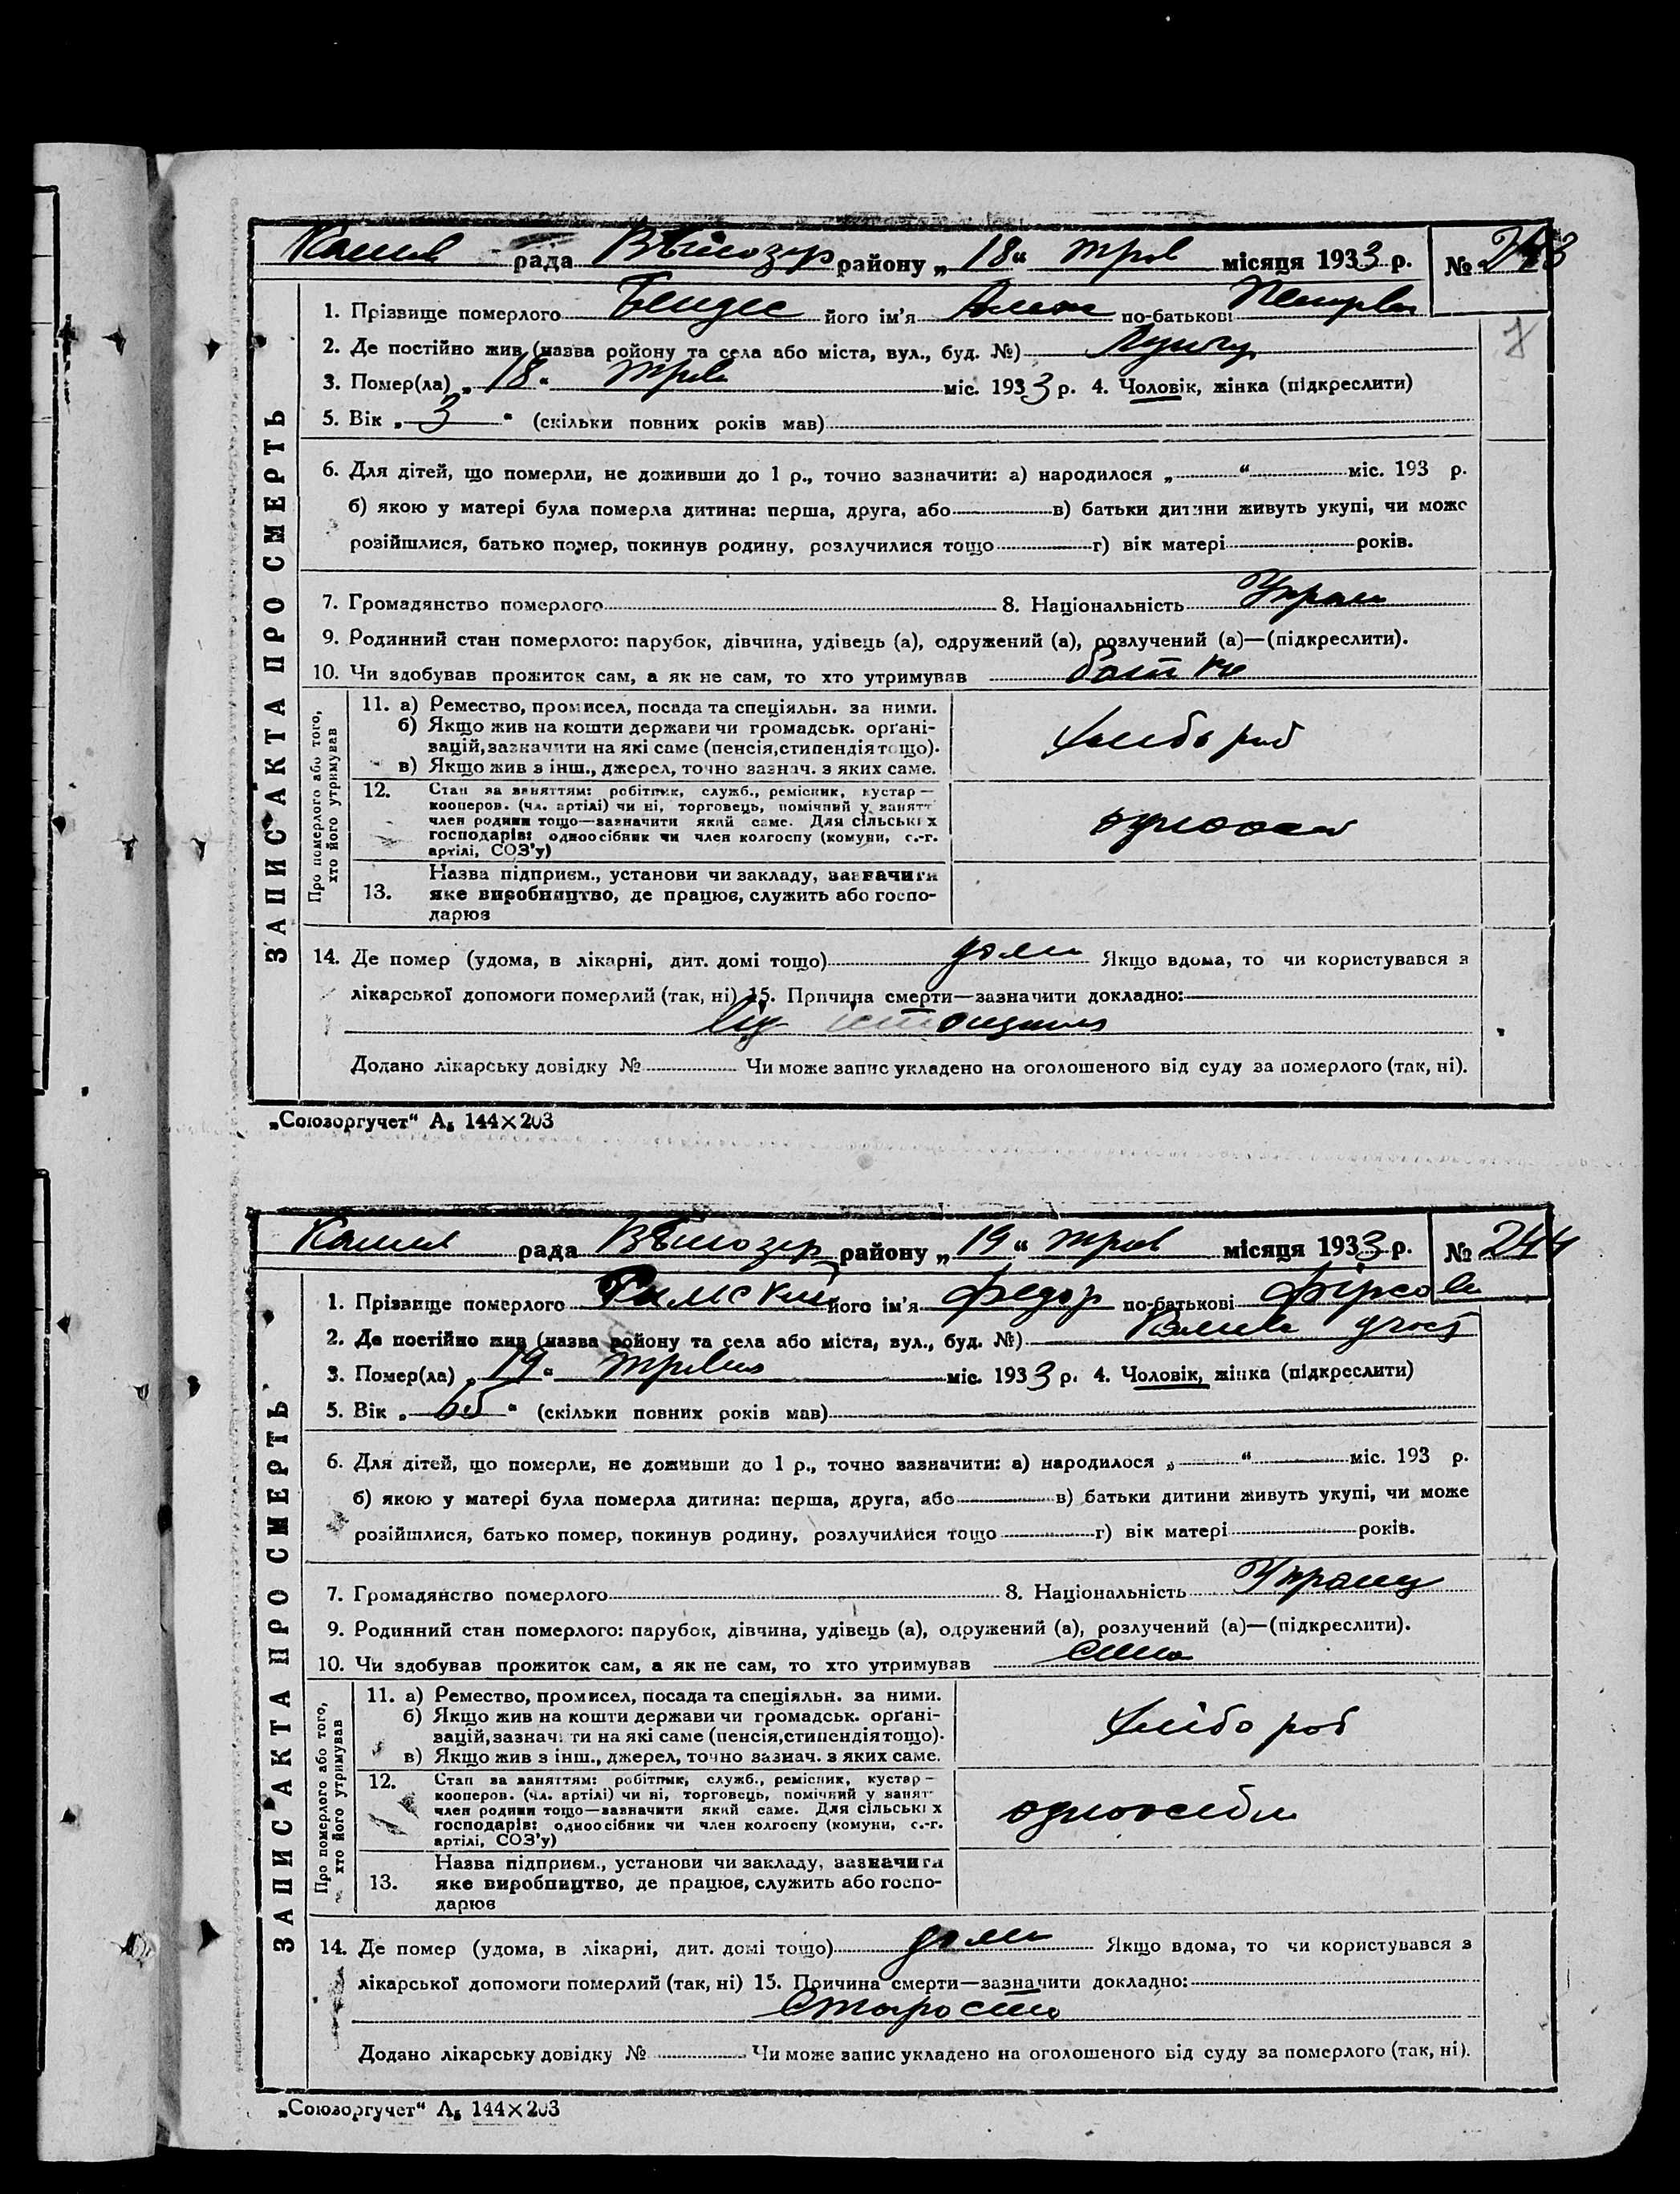 рада району „ 18 “ трав місяця 1933 р. № 243
1. Прізвище померлого його ім’я по-батькові
2. Де постійно жив (назва ройону та села або міста, вул., буд. №)
3. Помер(ла) „ 18 “ трав міс. 1933 р. 4. Чоловік, жінка (підкреслити)
5. Вік „ 3 “ (скільки повних років мав)
6. Для дітей, що померли, не доживши до 1 р., точно зазначити: а) народилося „ “ міс. 193 р.
б) якою у матері була померла дитина: перша, друга, або в) батьки дитини живуть укупі, чи може
розійшлися, батько помер, покинув родину, розлучилися тощо г) вік матері років.
7. Громадянство померлого 8. Національність Украин
9. Родинний стан померлого: парубок, дівчина, удівець (а), одружений (а), розлучений (а)—(підкреслити).
10. Чи здобував прожиток сам, а як не сам, то хто утримував батько
ЗАПИС АКТА ПРО СМЕРТЬ
Про померлого або того, хто його утримував
11. а) Ремество, промисел, посада та спеціяльн. за ними.
б) Якщо жив на кошти держави чи громадськ. орґані-
зацій, зазначити на які саме (пенсія, стипендія тощо).
в) Якщо жив з інш., джерел, точно зазнач. з яких саме.
хлібороб
12. Стан за заняттям: робітник, служб., ремісник, кустар—
кооперов. (чл. артілі) чи ні, торговець, помічний у занятт
член родини тощо—зазначити який саме. Для сільських
господарів: одноосібник чи член колгоспу (комуни, с.-г.
артілі, СОЗ’у)
13. Назва підприєм., установи чи закладу, зазначити
яке виробництво, де працює, служить або госпо-
дарює
14. Де помер (удома, в лікарні, дит. домі тощо) дома Якщо вдома, то чи користувався з
лікарської допомоги померлий (так, ні) 15. Причина смерти—зазначити докладно:
Додано лікарську довідку № Чи може запис укладено на оголошеного від суду за померлого (так, ні).
„Союзоргучет“ А₅ 144×203
рада району „ 19 “ трав місяця 1933 р. № 244
1. Прізвище померлого його ім’я Федор по-батькові Фірсов
2. Де постійно жив (назва ройону та села або міста, вул., буд. №)
3. Помер(ла) „ 19 “ травня міс. 1933 р. 4. Чоловік, жінка (підкреслити)
5. Вік „ 65 “ (скільки повних років мав)
6. Для дітей, що померли, не доживши до 1 р., точно зазначити: а) народилося „ “ міс. 193 р.
б) якою у матері була померла дитина: перша, друга, або в) батьки дитини живуть укупі, чи може
розійшлися, батько помер, покинув родину, розлучилися тощо г) вік матері років.
7. Громадянство померлого 8. Національність Украинц
9. Родинний стан померлого: парубок, дівчина, удівець (а), одружений (а), розлучений (а)—(підкреслити).
10. Чи здобував прожиток сам, а як не сам, то хто утримував
ЗАПИС АКТА ПРО СМЕРТЬ
Про померлого або того, хто його утримував
11. а) Ремество, промисел, посада та спеціяльн. за ними.
б) Якщо жив на кошти держави чи громадськ. орґані-
зацій, зазначити на які саме (пенсія, стипендія тощо).
в) Якщо жив з інш., джерел, точно зазнач. з яких саме.
хлібороб
12. Стан за заняттям: робітник, служб., ремісник, кустар—
кооперов. (чл. артілі) чи ні, торговець, помічний у занят
член родини тощо—зазначити який саме. Для сільських
господарів: одноосібник чи член колгоспу (комуни, с.-г.
артілі, СОЗ’у)
13. Назва підприєм., установи чи закладу, зазначити
яке виробництво, де працює, служить або госпо-
дарює
14. Де помер (удома, в лікарні, дит. домі тощо) дома Якщо вдома, то чи користувався з
лікарської допомоги померлий (так, ні) 15. Причина смерти—зазначити докладно:
Старость
Додано лікарську довідку № Чи може запис укладено на оголошеного від суду за померлого (так, ні).
„Союзоргучет“ А₅ 144×203